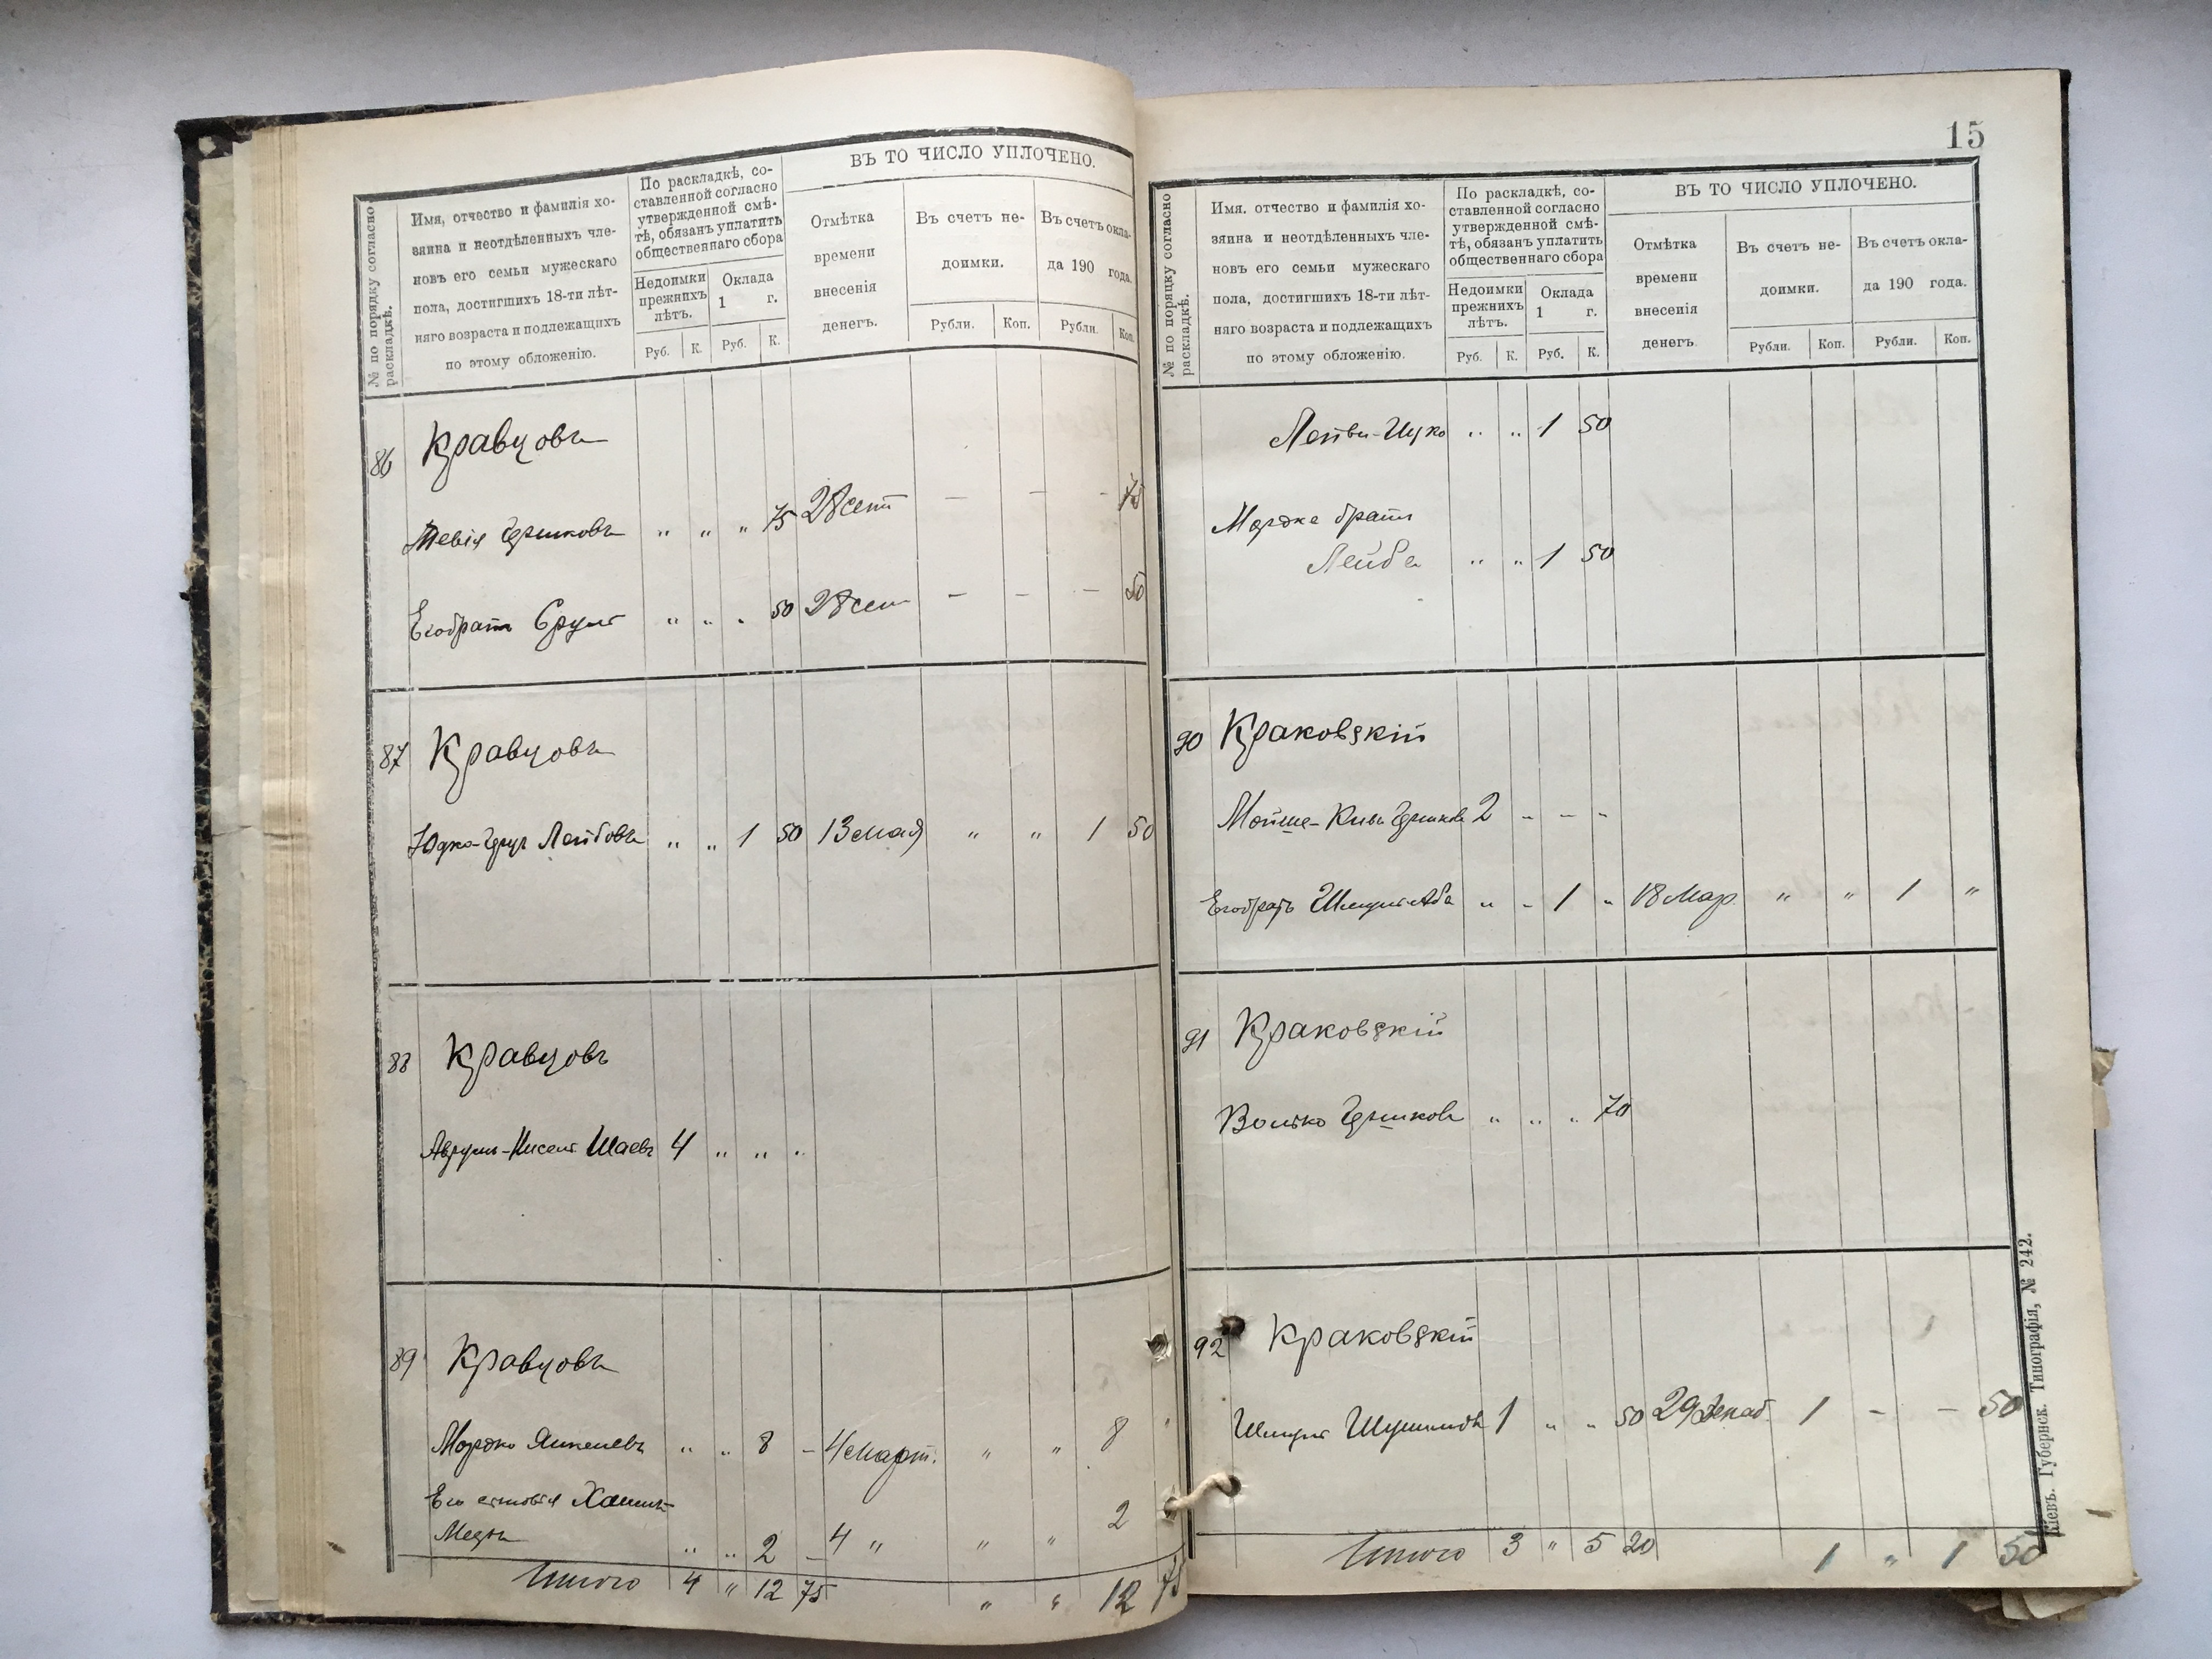 ВЪ ТО ЧИСЛО УПЛОЧЕНО.
№ по порядку согласно
раскладкѣ.
Имя, отчество и фамилія хо-
зяина и неотдѣленныхъ чле-
новъ его семьи мужескаго
пола, достигшихъ 18-ти лѣт-
няго возраста и подлежащихъ
по этому обложенію.
По раскладкѣ, со-
ставленной согласно
утвержденной смѣ-
тѣ, обязанъ уплатить
общественнаго сбора
Недоимки
прежнихъ
лѣтъ.
Оклада
1 г.
Руб. К. Руб. К.
Отмѣтка
времени
внесенія
денегъ.
Въ счетъ не-
доимки.
Въ счетъ окла-
да 190 года.
Рубли. Коп. Рубли. Коп.
86 Кравцовъ
Тевія Гершковъ „ „ „ 75 28 сент — — - 75
Его братъ Сруль „ „ „ 50 28 сен — — — 50
87 Кравцовъ
Юдко-Герш Лейбовъ „ „ 1 50 13 мая „ „ 1 50
88 Кравцовъ
Аврумъ-Нисель Шаевъ 4 „ „ „
89 Кравцовъ
Мордко Янкелевъ „ „ 8 - 4 март. „ „ 8
Его сыновья Хаимъ
„ „ 2 - 4 „ „ „ 2
Итого 4 „ 12 75 „ „ 12 75
15
ВЪ ТО ЧИСЛО УПЛОЧЕНО.
№ по порядку согласно
раскладкѣ.
Имя. отчество и фамилія хо-
зяина и неотдѣленныхъ чле-
новъ его семьи мужескаго
пола, достигшихъ 18-ти лѣт-
няго возраста и подлежащихъ
по этому обложенію.
По раскладкѣ, со-
ставленной согласно
утвержденной смѣ-
тѣ, обязанъ уплатить
общественнаго сбора
Недоимки
прежнихъ
лѣтъ.
Оклада
1 г.
Руб. К. Руб. К.
Отмѣтка
времени
внесенія
денегъ.
Въ счетъ не-
доимки.
Въ счетъ окла-
да 190 года.
Рубли. Коп. Рубли. Коп.
„ „ 1 50
Мордка братъ
Лейба „ „ 1 50
90 Краковскій
Мойше- Гершковъ 2 - - -
Его братъ Шмуль-Аба „ - 1 „ 18 Мар. „ „ 1 „
91 Краковскій
Волько Гершковъ „ „ „ 70
92 Краковскій
Шмуль 1 „ „ 50 29 Декаб. 1 - - 50
Итого 3 „ 5 20 1 „ 1 50
Кіевъ. Губернск. Типографія, № 242.